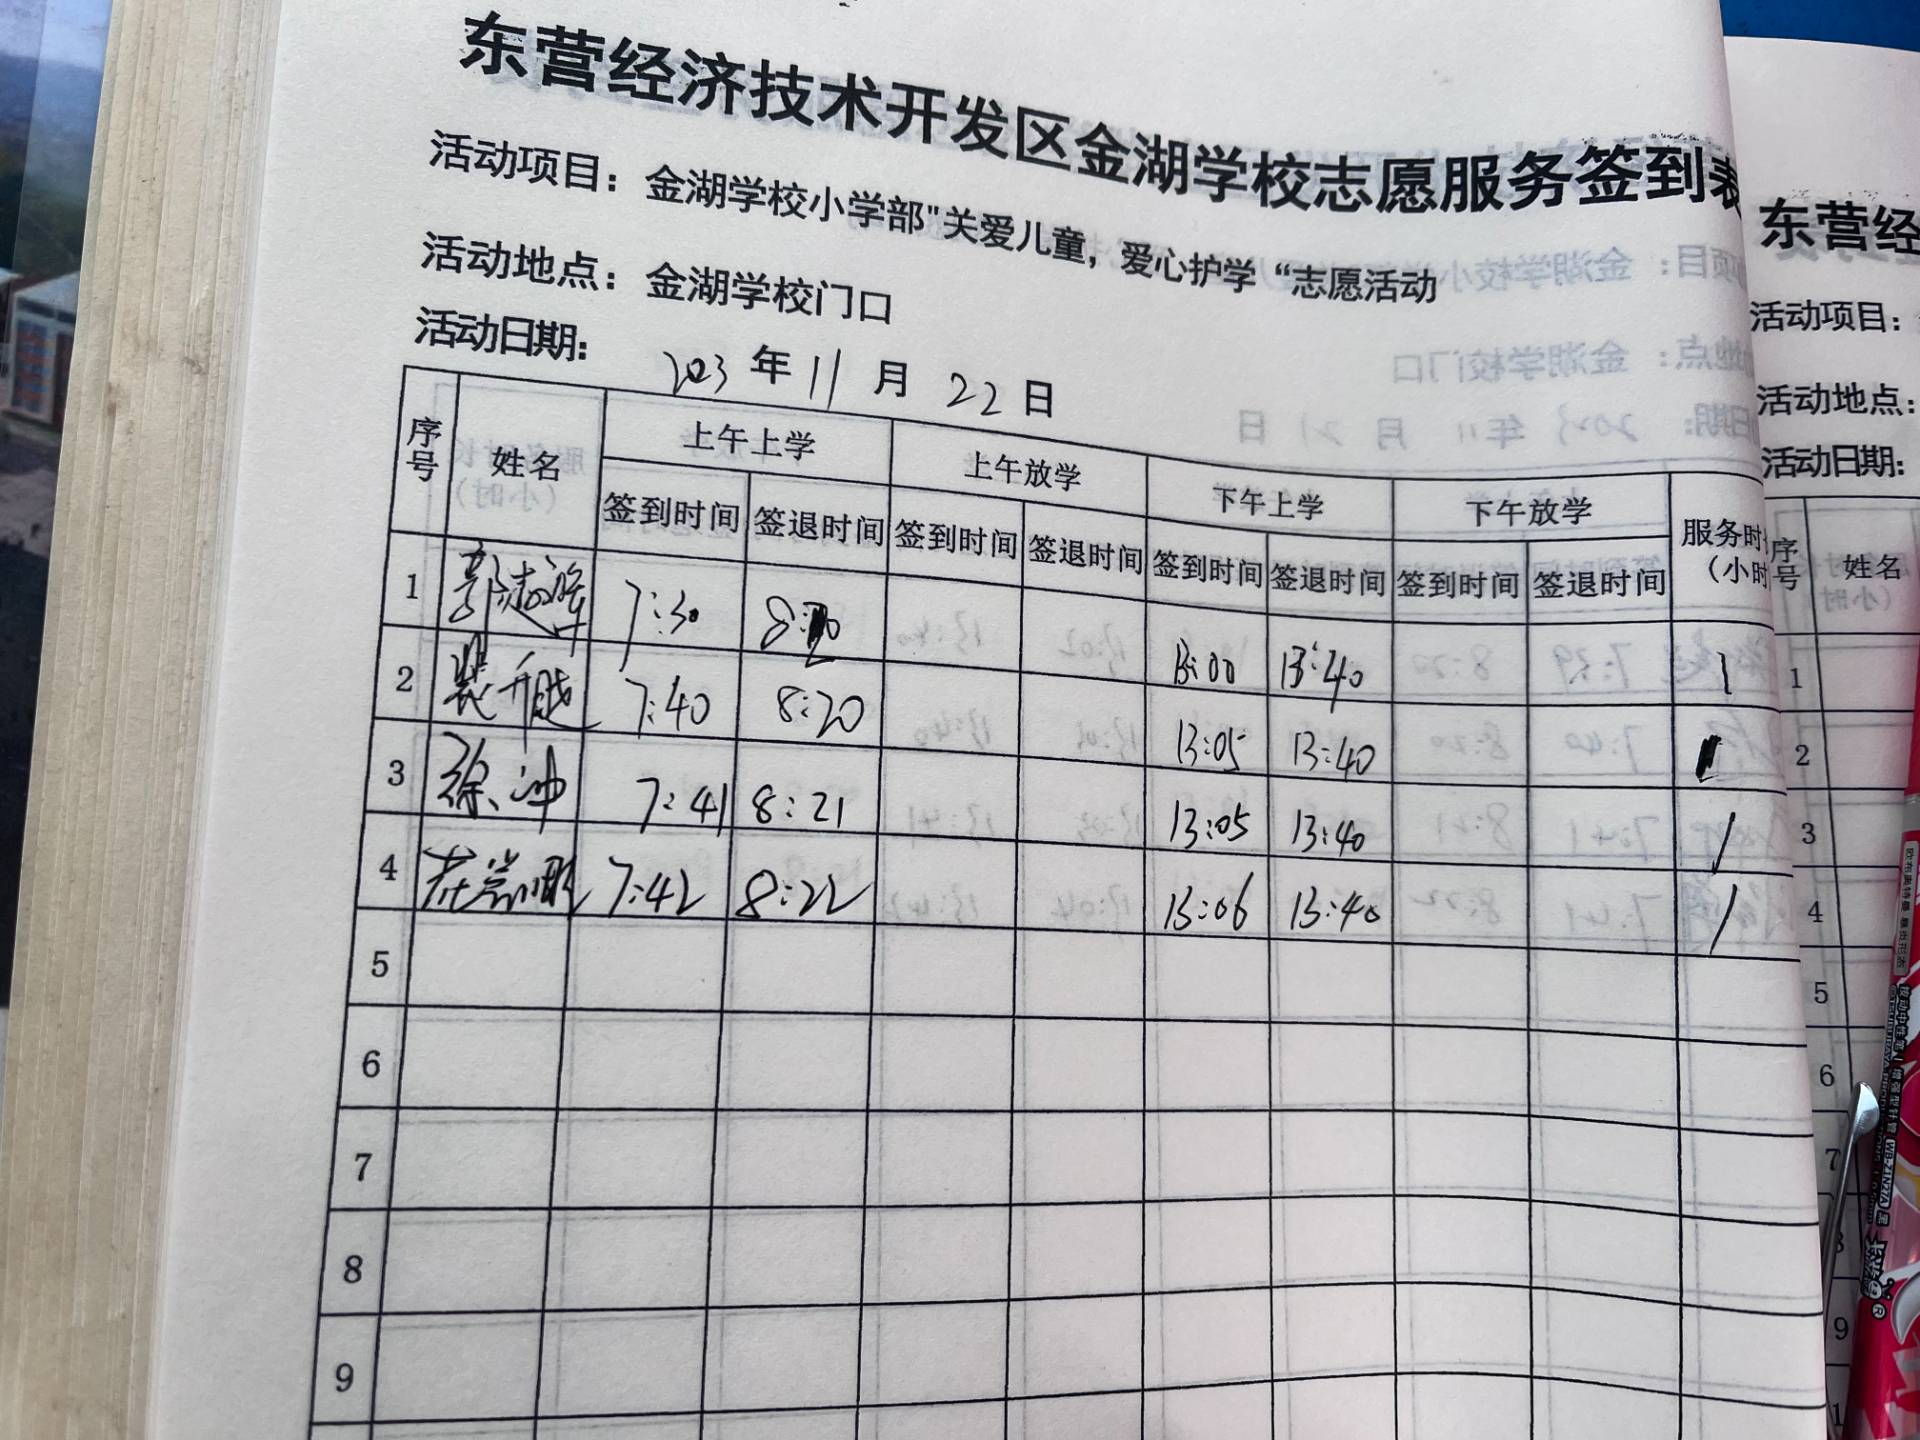 东营经济技术开发区金湖学校志愿服务签到表
活动项目：金湖学校小学部"关爱儿童，爱心护学“志愿活动
活动地点：金湖学校门口
活动日期： 2023 年 11 月 22 日
序号 姓名 上午上学 上午放学 下午上学 下午放学 服务时 （小时
签到时间 签退时间 签到时间 签退时间 签到时间 签退时间 签到时间 签退时间
1 7:30 8:20 13:00 13:40 1
2 7:40 8:20 13:05 13:40 1
3 徐冲 7:41 8:21 13:05 13:40 1
4 7:42 8:22 13:06 13:40 1
5
6
7
8
9
东营经
活动项目：
活动地点：
活动日期：
序号 姓名
1
2
3
4
5
6
7
8
9